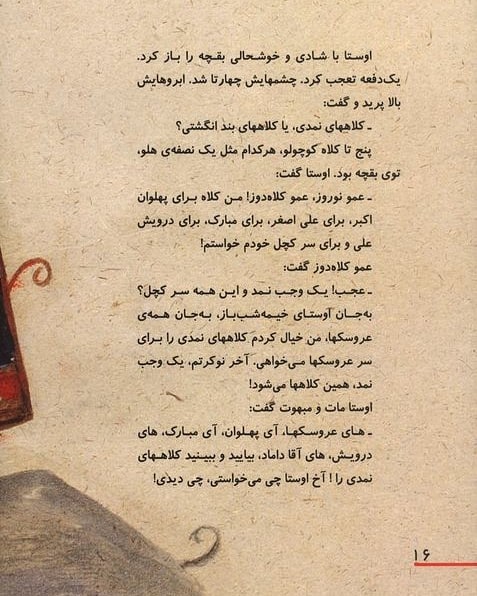 اوستا با شادی و خوشحالی بقچه را باز کرد.
یک‌دفعه تعجب کرد. چشمهایش چهارتا شد. ابروهایش
بالا پرید و گفت:
ـ کلاههای نمدی، یا کلاههای بند انگشتی؟
پنج تا کلاه کوچولو، هرکدام مثل یک نصفه‌ی هلو،
توی بقچه بود. اوستا گفت:
ـ عمو نوروز، عمو کلاه‌دوز! من کلاه برای پهلوان
اکبر، برای علی اصغر، برای مبارک، برای درویش
علی و برای سر کچل خودم خواستم!
عمو کلاه‌دوز گفت:
ـ عجب! یک وجب نمد و این همه سر کچل؟
به‌جان اوستای خیمه‌شب‌باز، به‌جان همه‌ی
عروسکها، من خیال کردم کلاههای نمدی را برای
سر عروسکها می‌خواهی. آخر نوکرتم، یک وجب
نمد، همین کلاهها می‌شود!
اوستا مات و مبهوت گفت:
ـ های عروسکها، آی پهلوان، آی مبارک، های
درویش، های آقا داماد، بیایید و ببینید کلاههای
نمدی را! آخ اوستا چی می‌خواستی، چی دیدی!
۱۶